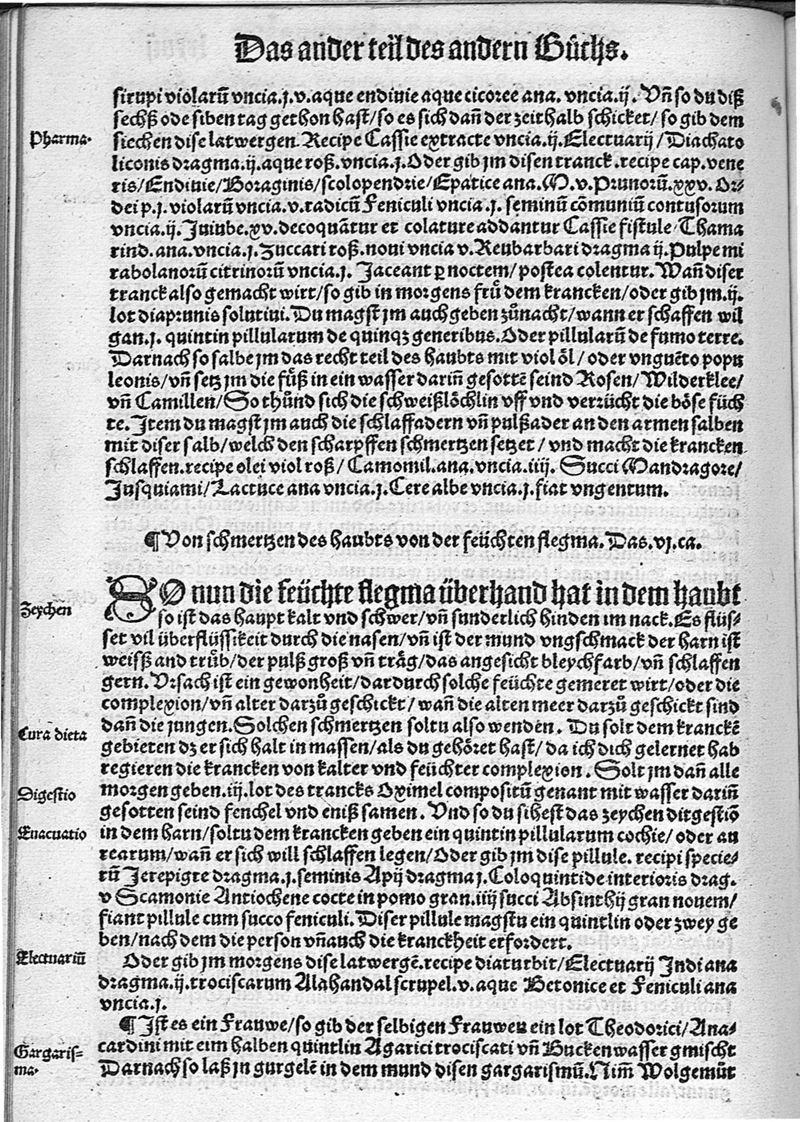 Das ander teil des andern Bůchs.
sirupi violarũ vncia.j.v.aque endiuie aque cicoree ana. vncia.ij. Vñ so du diß
sechß ode siben tag gethon hast/so es sich dañ der zeithalb schicket/so gib dem
Pharma.
siechen dise latwergen. Recipe Cassie extracte vncia.ij. Electuarij/Diachato
liconis dragma.ij.aque roß.vncia.j. Oder gib jm disen tranck.recipe cap.vene
ris/Endiuie/Boraginis/scolopendrie/Epatice ana.M.v.Prunorũ.xxv. Or-
dei p.j. violarũ vncia.v.radicũ Feniculi vncia.j. seminũ cõmuniũ contusorum
vncia.ij. Juiube.xv.decoquãtur et colature addantur Cassie fistule Thama
rind.ana.vncia.j.Zuccari roß.noui vncia v.Reubarbari dragma ij.Pulpe mi
rabolanorũ citrinorũ vncia.j. Jaceant ꝑ noctem/postea colentur. Wañ diser
tranck also gemacht wirt/so gib in morgens frů dem krancken/oder gib jm.ij.
lot diaprunis solutiui. Du magst jm auch geben zůnacht/wann er schaffen wil
gan.j. quintin pillularum de quinqꝫ generibus. Oder pillularũ de fumo terre.
Darnach so salbe jm das recht teil des haubts mit viol ôl/oder vnguẽto popu
leonis/vñ setz jm die fůß in ein wasser dariñ gesottẽ seind Rosen/Wilderklee/
vñ Camillen/So thůnd sich die schweißlôchlin vff vnd verzücht die böse füch
te. Item du magst jm auch die schlaffadern vñ pulßader an den armen salben
mit diser salb/welch den scharpffen schmertzen setzet/vnd macht die krancken
schlaffen.recipe olei viol roß/Camomil.ana.vncia.iiij. Succi Mandragore/
Jusquiami/Lactuce ana vncia.j.Cere albe vncia.j.fiat vngentum.
¶Von schmertzen des haubts von der feüchten flegma. Das.vj.ca.
SO nun die feüchte flegma überhand hat in dem haubt
Zeychen
so ist das haupt kalt vnd schwer/vñ sunderlich hinden im nack. Es flüs-
set vil überflüssikeit durch die nasen/vñ ist der mund vngschmack der harn ist
weisß and trüb/der pulß groß vñ träg/das angesicht bleychfarb/vñ schlaffen
gern. Vrsach ist ein gewonheit/dardurch solche feüchte gemeret wirt/oder die
complexion/vñ alter darzů geschickt/wañ die alten meer darzů geschickt sind
Cura dieta
dañ die jungen. Solchen schmertzen soltu also wenden. Du solt dem kranckẽ
gebieten dz er sich halt in massen/als du gehöret hast/da ich dich gelernet hab
regieren die krancken von kalter vnd feüchter complexion. Solt jm dañ alle
Digestio
morgen geben.iij.lot des trancks Oximel compositũ genant mit wasser dariñ
gesotten seind fenchel vnd eniß samen. Vnd so du sihest das zeychen ditgestiõ
Euacuatio
in dem harn/soltu dem krancken geben ein quintin pillularum cochie/oder au
rearum/wañ er sich will schlaffen legen/Oder gib jm dise pillule. recipi specie-
rũ Jerepigre dragma.j.seminis Apij dragma j.Coloquintide interioris drag.
v Scamonie Antiochene cocte in pomo gran.iiij succi Absinthij gran nouem/
fiant pillule cum succo feniculi. Diser pillule magstu ein quintlin oder zwey ge
ben/nach dem die person vñauch die kranckheit erfordert.
Electuariũ
Oder gib jm morgens dise latwergẽ.recipe diaturbit/Electuarij Indi ana
dragma.ij.trociscarum Alahandal scrupel.v.aque Betonice et Feniculi ana
vncia.j.
¶ Ist es ein Frauwe/so gib der selbigen Frauwen ein lot Theodorici/Ana-
Gargaris-
ma.
cardini mit eim halben quintlin Agarici trociscati vñ Buckenwasser gmischt
Darnach so laß jn gurgelẽ in dem mund disen gargarismũ. Nim̃ Wolgemůt